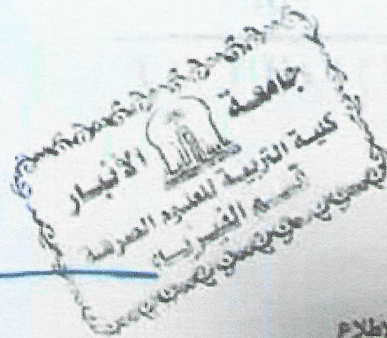 جامعة
الانبار
كلية التربية للعلوم الصرفة
قسم الفيزياء